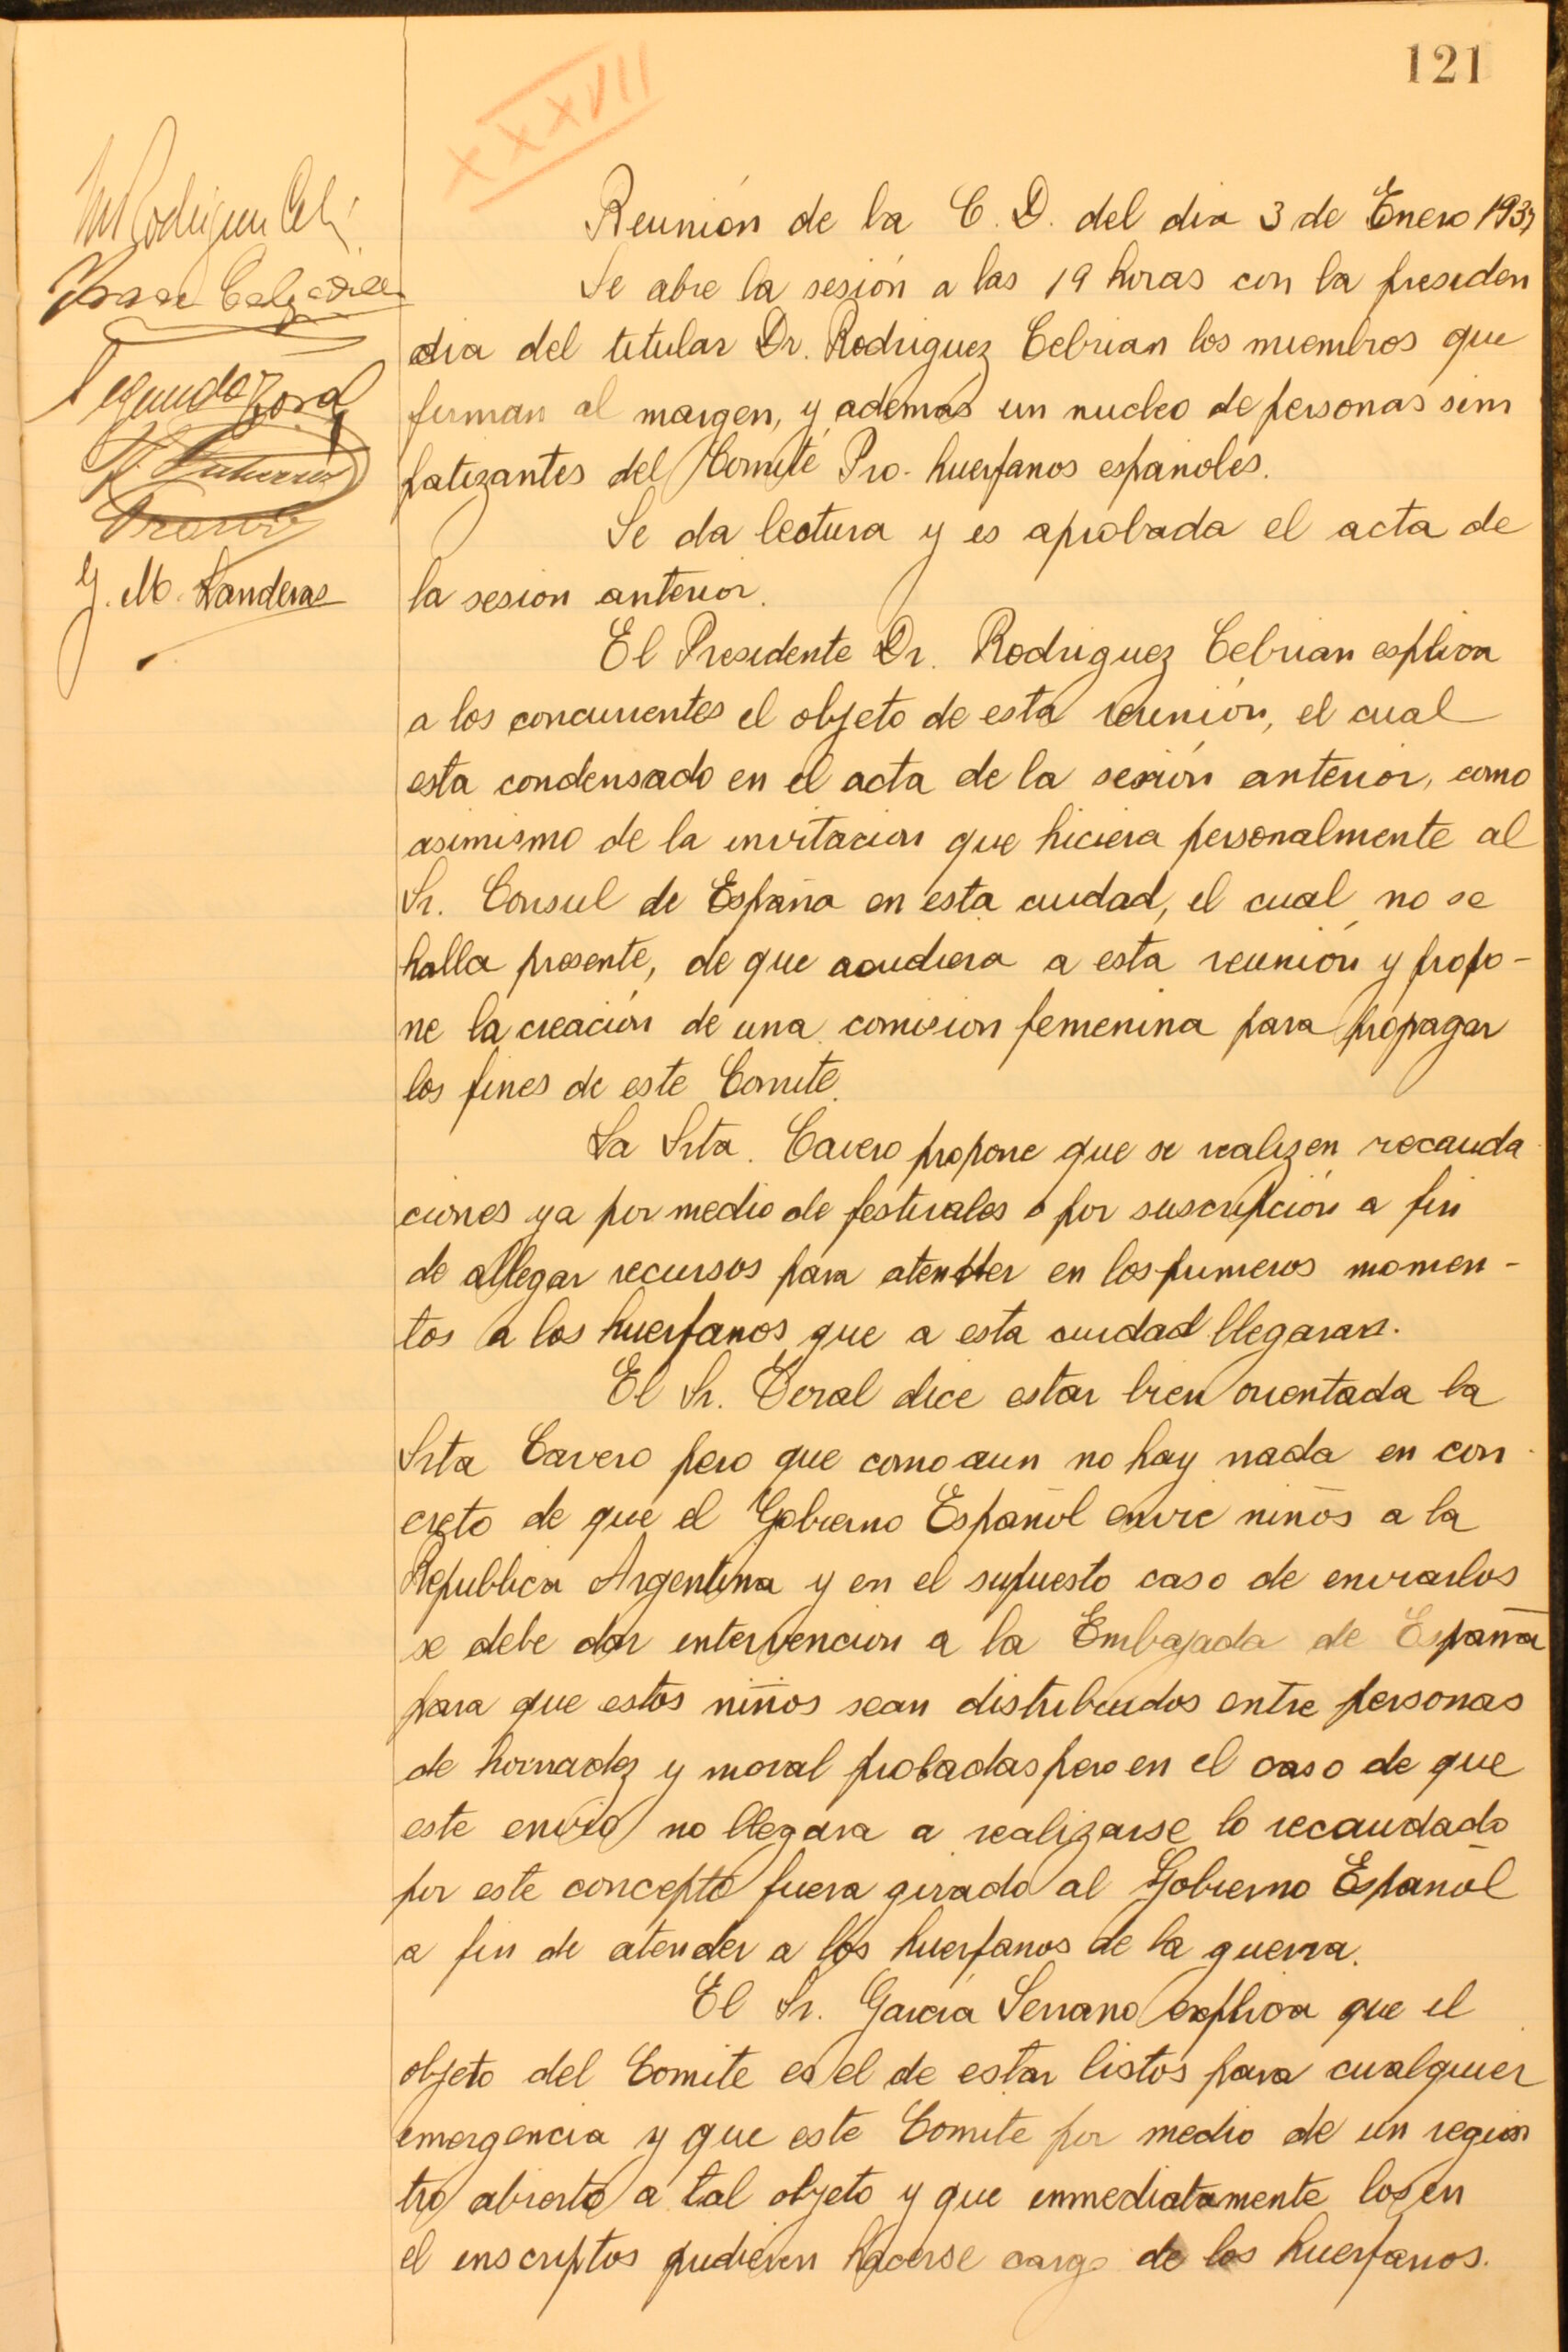 121
XXXVII
Reunión de la C. D. del dia 3 de Enero 1937
Se abre la sesión a las 19 horas con la presiden
cia del titular Dr. Rodriguez Cebrian los miembros que
firman al margen, y ademas un nucleo de personas sim
patizantes del Comité Pro-huerfanos españoles.
Se da lectura y es aprobada el acta de
la sesion anterior.
El Presidente Dr. Rodriguez Cebrian esplica
a los concurrentes el objeto de esta reunión, el cual
esta condensado en el acta de la sesión anterior, como
asimismo de la invitacion que hiciera personalmente al
Sr. Consul de España en esta ciudad, el cual no se
halla presente, de que acudiera a esta reunión y propo-
ne la creación de una comision femenina para propagar
los fines de este Comité.
La Srta. Cavero propone que se realizen recauda
ciones ya por medio de festivales o por suscripción a fin
de allegar recursos para atender en los primeros momen-
tos a los huerfanos que a esta ciudad llegaran.
El Sr. Toral dice estar bien orientada la
Srta Cavero pero que como aun no hay nada en con
creto de que el Gobierno Español envie niños a la
Republica Argentina y en el supuesto caso de enviarlos
se debe dar intervencion a la Embajada de España
para que estos niños sean distribuidos entre personas
de honradez y moral probadas pero en el caso de que
este envio no llegara a realizarse lo recaudado
por este concepto fuera girado al Gobierno Español
a fin de atender a los huerfanos de la guerra.
El Sr. Garcia Serrano explica que el
objeto del Comite es el de estar listos para cualquier
emergencia y que este Comite por medio de un regis
tro abierto a tal objeto y que inmediatamente los en
el inscriptos pudieren hacerse cargo de los huerfanos.
Segundo Toral
J. M. Landeras